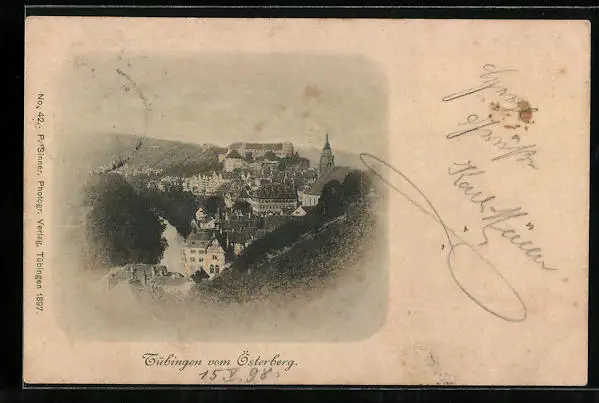 No. 42. P. Sinner. Photogr. Verlag. Tübingen 1897.
Karl Müller
Tübingen vom Österberg.
15 V 98.